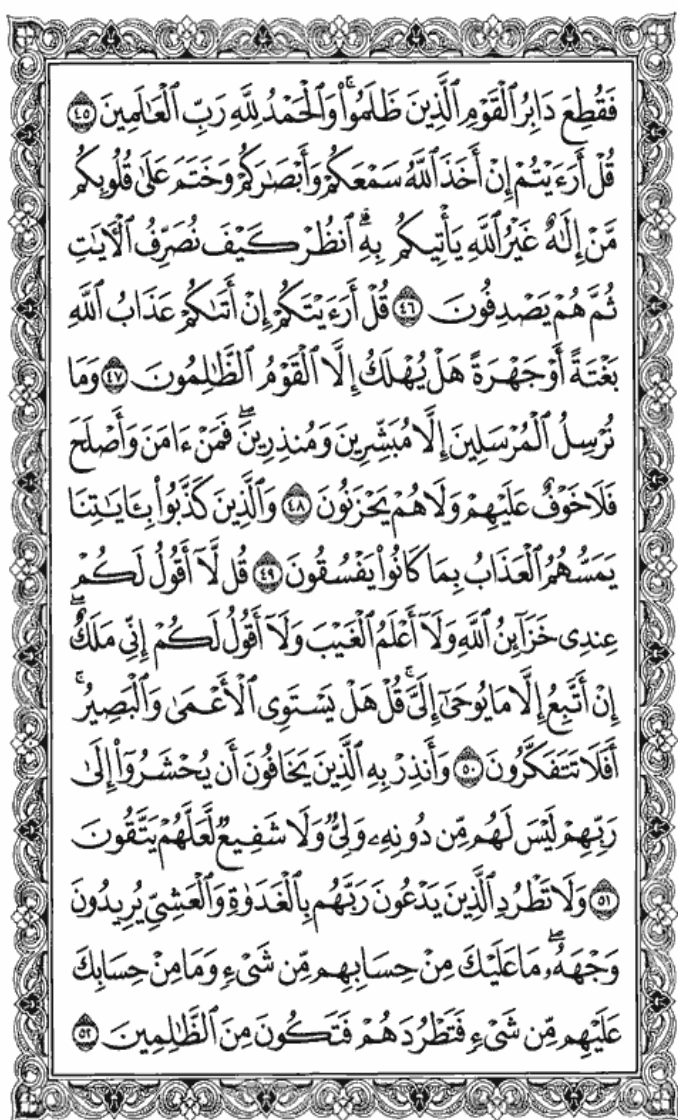 فَقُطِعَ دَابِرُ ٱلْقَوْمِ ٱلَّذِينَ ظَلَمُوا۟ۚ وَٱلْحَمْدُ لِلَّهِ رَبِّ ٱلْعَـٰلَمِينَ ٤٥
قُلْ أَرَءَيْتُمْ إِنْ أَخَذَ ٱللَّهُ سَمْعَكُمْ وَأَبْصَـٰرَكُمْ وَخَتَمَ عَلَىٰ قُلُوبِكُم
مَّنْ إِلَـٰهٌ غَيْرُ ٱللَّهِ يَأْتِيكُم بِهِۗ ٱنظُرْ كَيْفَ نُصَرِّفُ ٱلْـَٔايَـٰتِ
ثُمَّ هُمْ يَصْدِفُونَ ٤٦ قُلْ أَرَءَيْتَكُمْ إِنْ أَتَىٰكُمْ عَذَابُ ٱللَّهِ
بَغْتَةً أَوْ جَهْرَةً هَلْ يُهْلَكُ إِلَّا ٱلْقَوْمُ ٱلظَّـٰلِمُونَ ٤٧ وَمَا
نُرْسِلُ ٱلْمُرْسَلِينَ إِلَّا مُبَشِّرِينَ وَمُنذِرِينَۖ فَمَنْ ءَامَنَ وَأَصْلَحَ
فَلَا خَوْفٌ عَلَيْهِمْ وَلَا هُمْ يَحْزَنُونَ ٤٨ وَٱلَّذِينَ كَذَّبُوا۟ بِـَٔايَـٰتِنَا
يَمَسُّهُمُ ٱلْعَذَابُ بِمَا كَانُوا۟ يَفْسُقُونَ ٤٩ قُل لَّآ أَقُولُ لَكُمْ
عِندِى خَزَآئِنُ ٱللَّهِ وَلَآ أَعْلَمُ ٱلْغَيْبَ وَلَآ أَقُولُ لَكُمْ إِنِّى مَلَكٌۖ
إِنْ أَتَّبِعُ إِلَّا مَا يُوحَىٰٓ إِلَىَّۚ قُلْ هَلْ يَسْتَوِى ٱلْأَعْمَىٰ وَٱلْبَصِيرُۚ
أَفَلَا تَتَفَكَّرُونَ ٥٠ وَأَنذِرْ بِهِ ٱلَّذِينَ يَخَافُونَ أَن يُحْشَرُوٓا۟ إِلَىٰ
رَبِّهِمْ لَيْسَ لَهُم مِّن دُونِهِۦ وَلِىٌّ وَلَا شَفِيعٌ لَّعَلَّهُمْ يَتَّقُونَ
٥١ وَلَا تَطْرُدِ ٱلَّذِينَ يَدْعُونَ رَبَّهُم بِٱلْغَدَوٰةِ وَٱلْعَشِىِّ يُرِيدُونَ
وَجْهَهُۥۖ مَا عَلَيْكَ مِنْ حِسَابِهِم مِّن شَىْءٍ وَمَا مِنْ حِسَابِكَ
عَلَيْهِم مِّن شَىْءٍ فَتَطْرُدَهُمْ فَتَكُونَ مِنَ ٱلظَّـٰلِمِينَ ٥٢